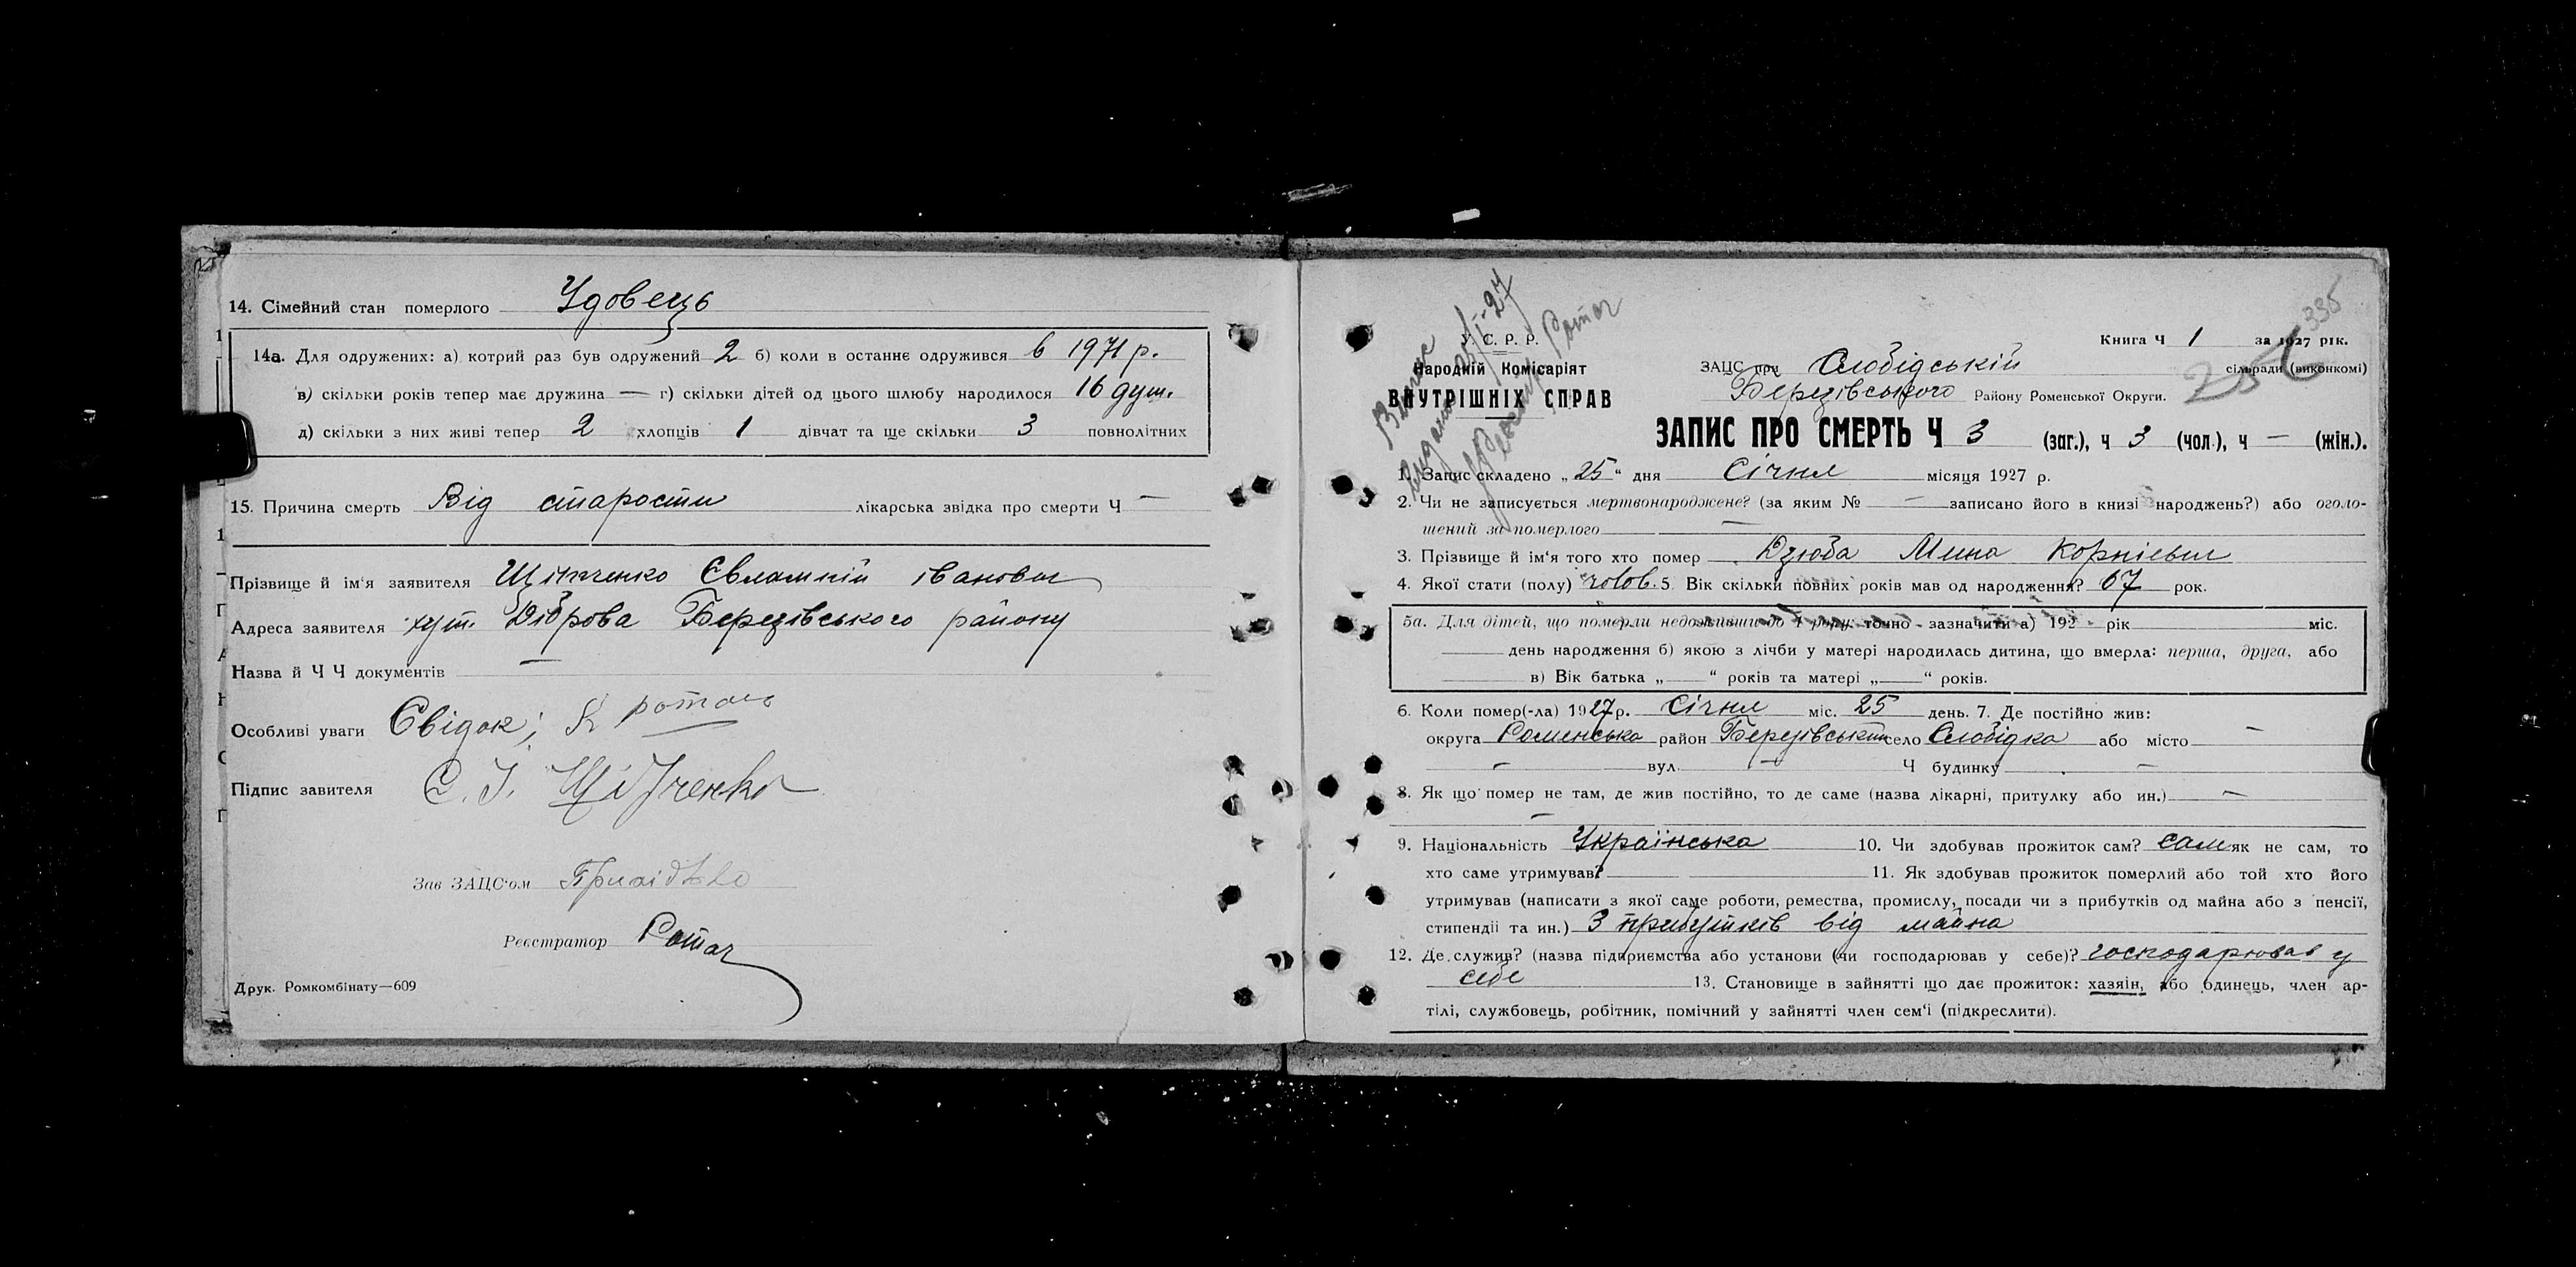 14. Сімейний стан померлого Удовець
14а. Для одружених: а) котрий раз був одружений 2 б) коли в останнє одружився в 1971 р.
в) скільки років тепер має дружина — г) скільки дітей од цього шлюбу народилося 16 душ.
д) скільки з них живі тепер 2 хлопців 1 дівчат та ще скільки 3 повнолітних
15. Причина смерть Від старости лікарська звідка про смерти Ч —
Прізвище й ім'я заявителя Євлампій Іванович
Адреса заявителя хут. Діброва Березівського району
Назва й Ч Ч документів —
Особливі уваги Свідок;
Підпис завителя Є. І.
Зав ЗАЦС'ом
Реєстратор Ротач
Друк. Ромкомбінату—609
335
У. С. Р. Р.
Народній Комісаріят
ВНУТРІШНІХ СПРАВ
Книга Ч 1 за 1927 рік.
ЗАЦС при Слобідській сільради (виконкомі)
Березівського Району Роменської Округи.
ЗАПИС ПРО СМЕРТЬ Ч 3 (заг.), ч 3 (чол.), ч — (жін.).
1. Запис складено „25“ дня Січня місяця 1927 р.
2. Чи не записується мертвонароджене? (за яким № — записано його в книзі народжень?) або оголо-
шений за померлого —
3. Прізвище й ім'я того хто помер Дзюба Мина Корнієвич
4. Якої стати (полу) чолов. 5. Вік скільки повних років мав од народження? 67 рок.
5а. Для дітей, що померли недоживши до 1 року: точно зазначити а) 192 рік міс.
день народження б) якою з лічби у матері народилась дитина, що вмерла: перша, друга, або
в) Вік батька „ “ років та матері „ “ років.
6. Коли помер(-ла) 1927 р. Січня міс. 25 день. 7. Де постійно жив:
округа Роменська район Березівський село Слобідка або місто —
— вул. — Ч будинку —
8. Як що помер не там, де жив постійно, то де саме (назва лікарні, притулку або ин.) —
—
9. Національність Українська 10. Чи здобував прожиток сам? сам як не сам, то
хто саме утримував? 11. Як здобував прожиток померлий або той хто його
утримував (написати з якої саме роботи, ремества, промислу, посади чи з прибутків од майна або з пенсії,
стипендії та ин.) З прибутків від майна
12. Де служив? (назва підприємства або установи (чи господарював у себе)? господарював у
себе 13. Становище в зайнятті що дає прожиток: хазяін, або одинець, член ар-
тілі, службовець, робітник, помічний у зайнятті член сем'ї (підкреслити).